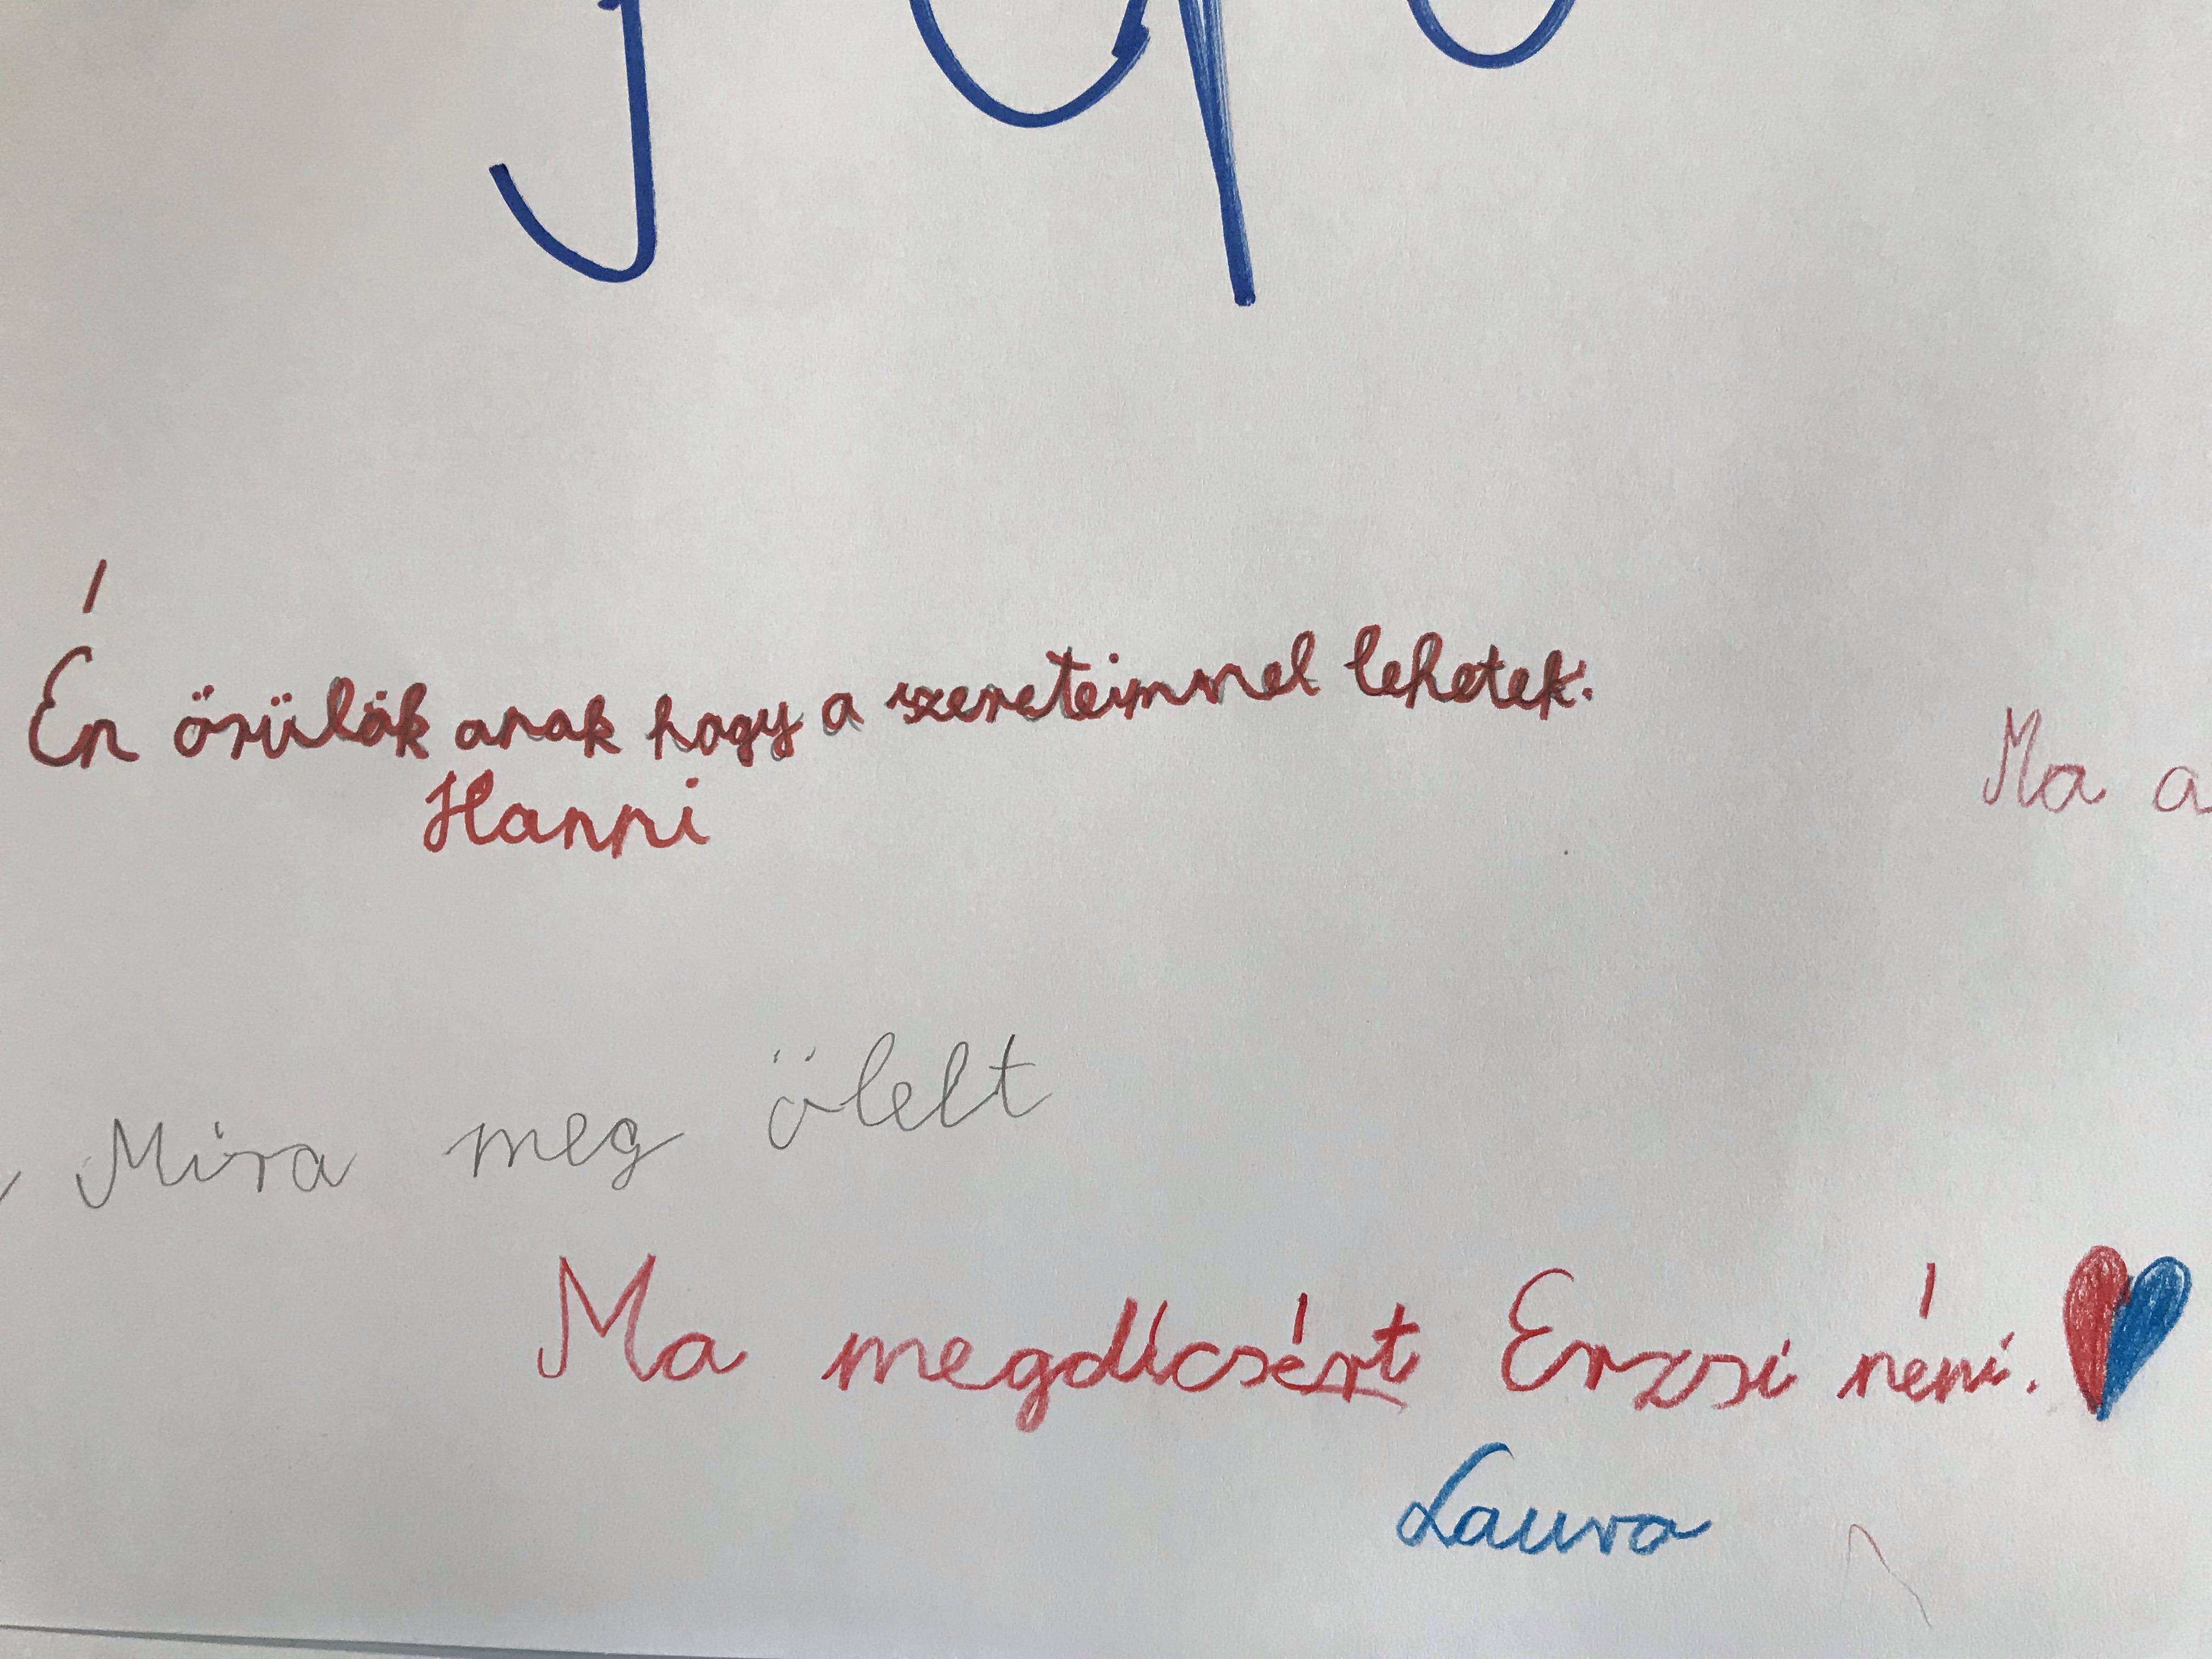 Én örülök anak hogy a szereteimnel lehetek.
Hanni
Ma a
Mira meg ölelt
Ma megdícsért Erzsi néni.
Laura